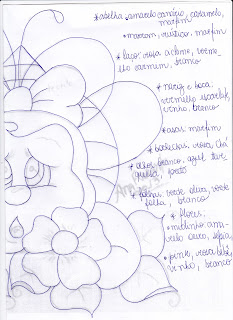 *abelha: amarelo canário, caramelo,
marfim
*marrom, rústico, marfim
*laço: rosa
lho carmim, branco
*nariz e boca,
vermelho escarlate,
vinho, branco
*asas: marfim
*bochechas: rosa chá
*olhos: branco, azul
preto
*folhas: verde oliva, verde
folha, branco
*flores:
*miolinho: ama-
relo ouro, sépia,
*pink, rosa bebê,
vinho, branco